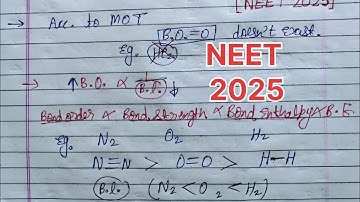 [NEET 2025]
→ Acc. to MOT
[B.O. = 0] doesn't exist.
Eg. He2
NEET
2025
→ ↑B.O. ∝ 1/B.L. ↓
Bond order ∝ Bond strength ∝ Bond enthalpy ∝ B.E
Eg. N2 O2 H2
N≡N > O=O > H-H
B.L. (N2 < O2 < H2)